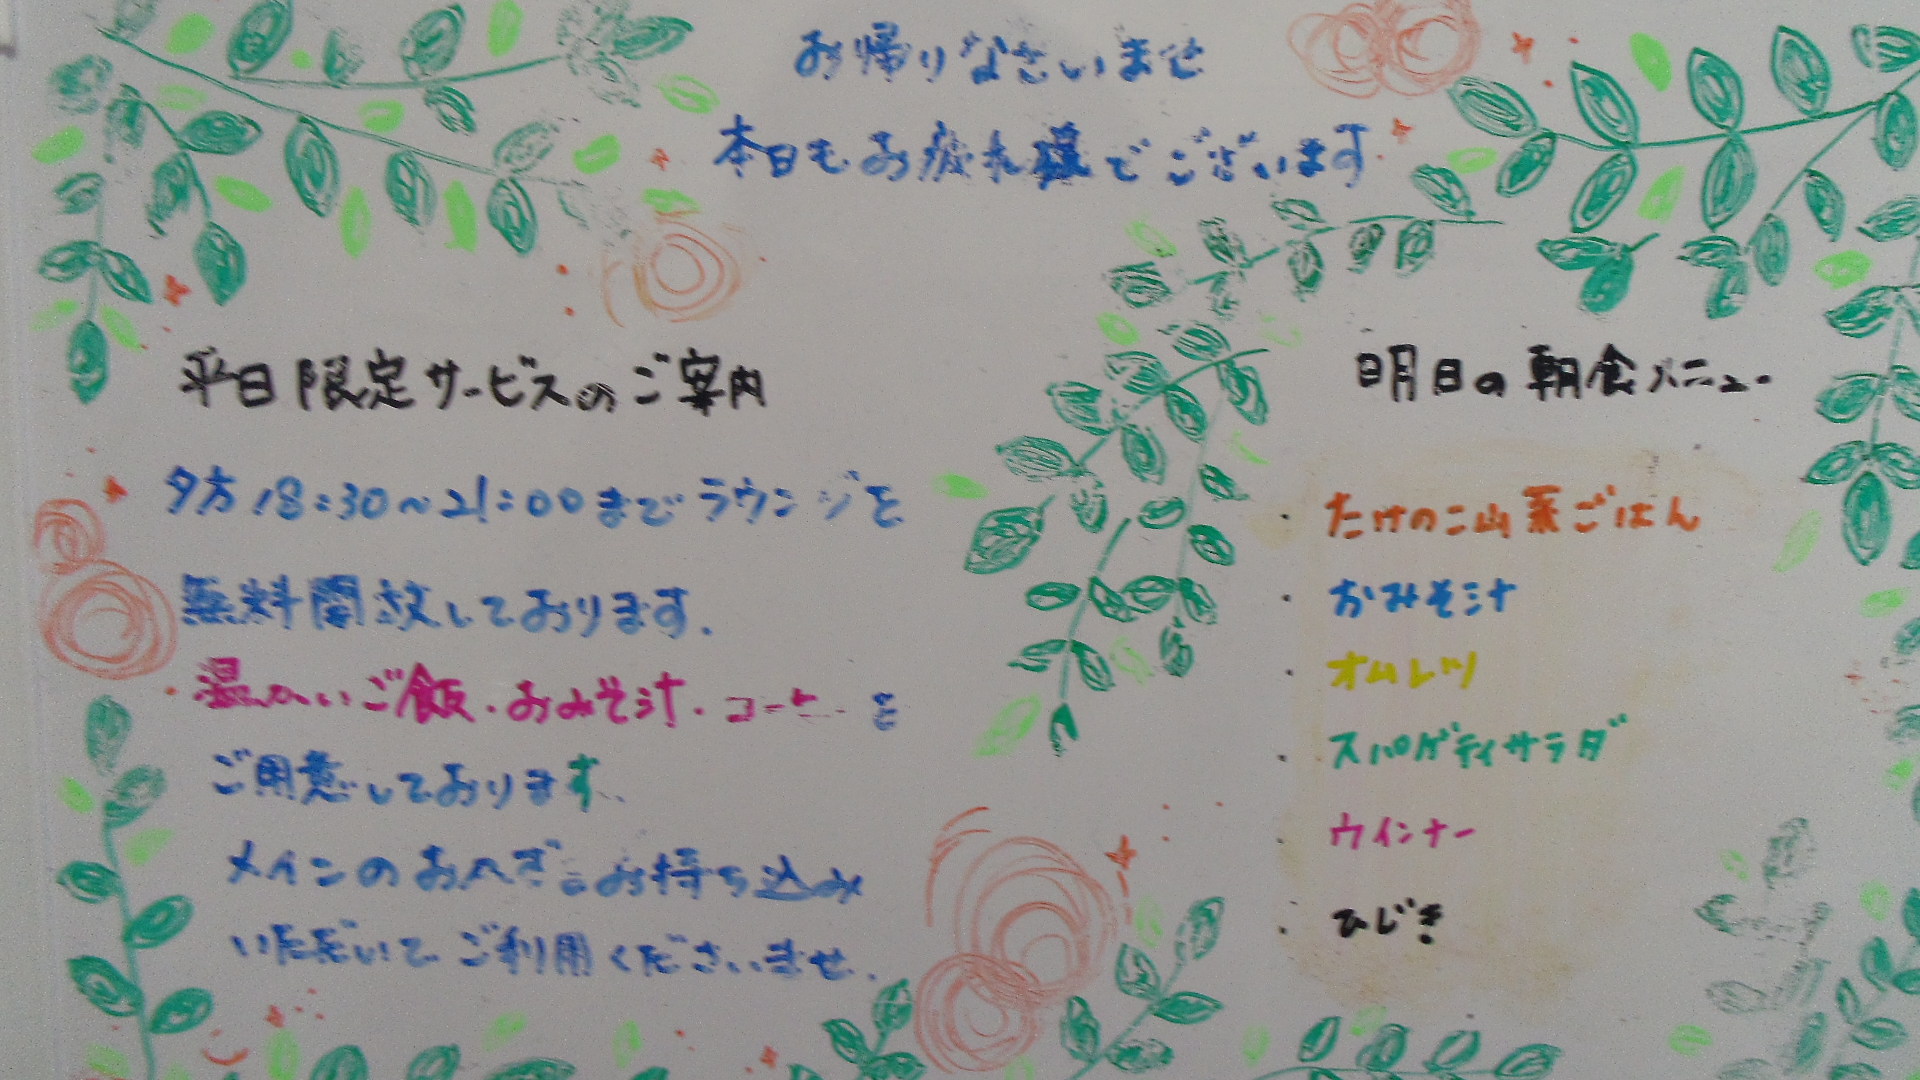 お帰りなさいませ
本日もお疲れ様でございます
平日限定サービスのご案内
夕方18:30〜21:00までラウンジを
無料開放しております.
・温かいご飯・おみそ汁・コーヒーを
ご用意しております.
メインのおかずをお持ち込み
いただいてご利用くださいませ.
明日の朝食メニュー
・たけのこ山菜ごはん
・おみそ汁
・オムレツ
・スパゲティサラダ
・ウインナー
・ひじき